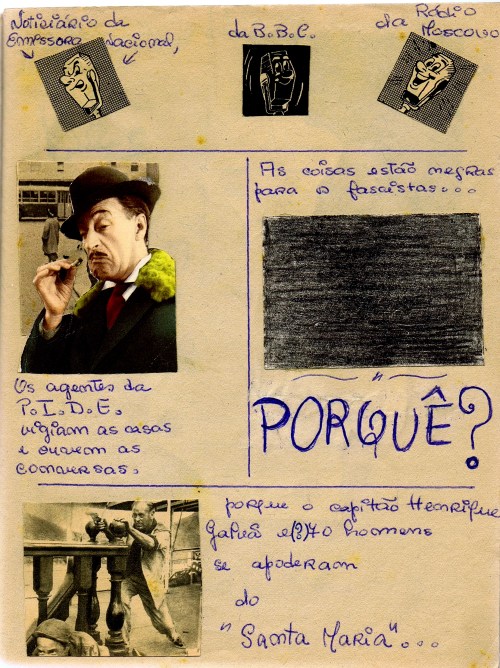 Noticiário da
Emissora Nacional,
da B.B.C.
da Rádio
Moscovo
As coisas estão negras
para o fascistas...
PORQUÊ?
Os agentes da
P.I.D.E.
vigiam as casas
e ouvem as
conversas.
porque o capitão Henrique
Galvã e(?)70 homens
se apoderam
do
"Santa Maria"...